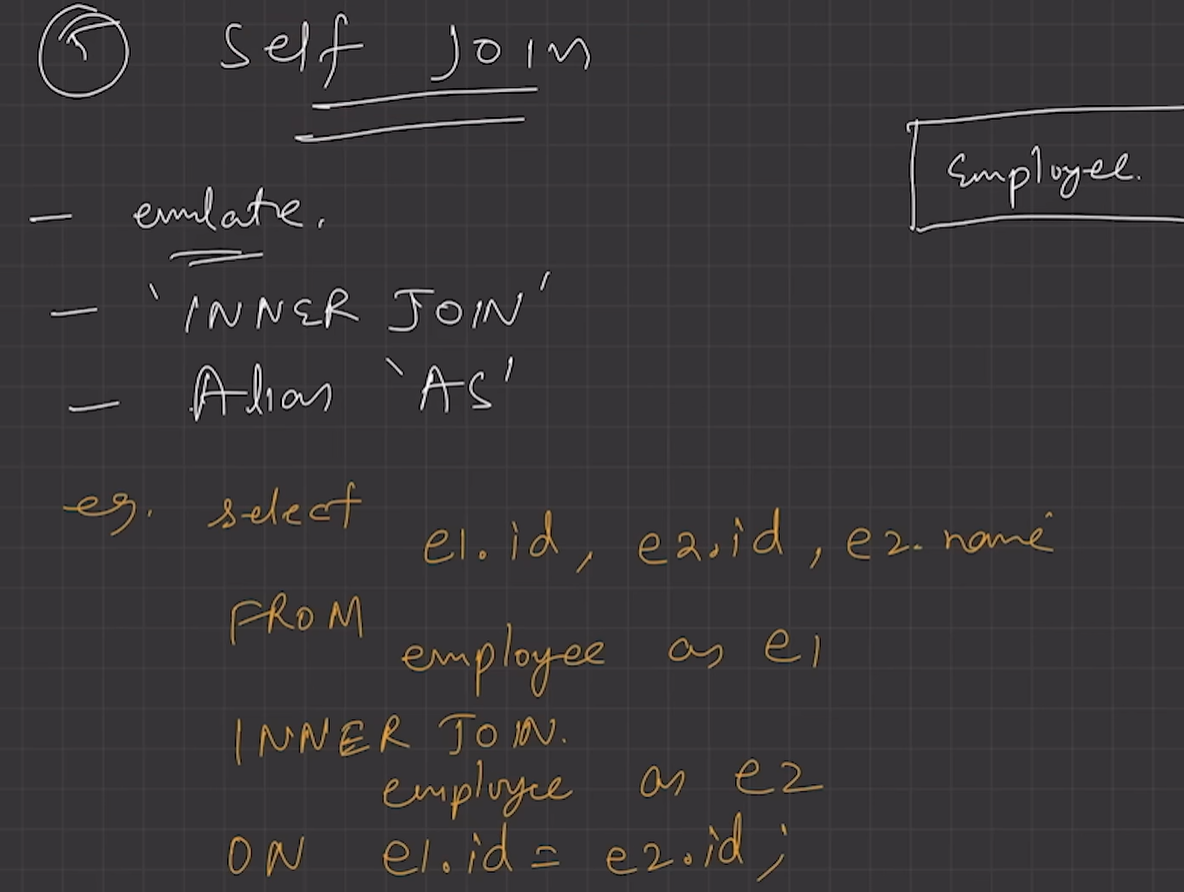 5 Self JOIN
Employee.
- emulate.
- 'INNER JOIN'
- Alias 'AS'
eg. select
e1.id, e2.id, e2.name
FROM
employee as e1
INNER JOIN.
employee as e2
ON e1.id = e2.id;